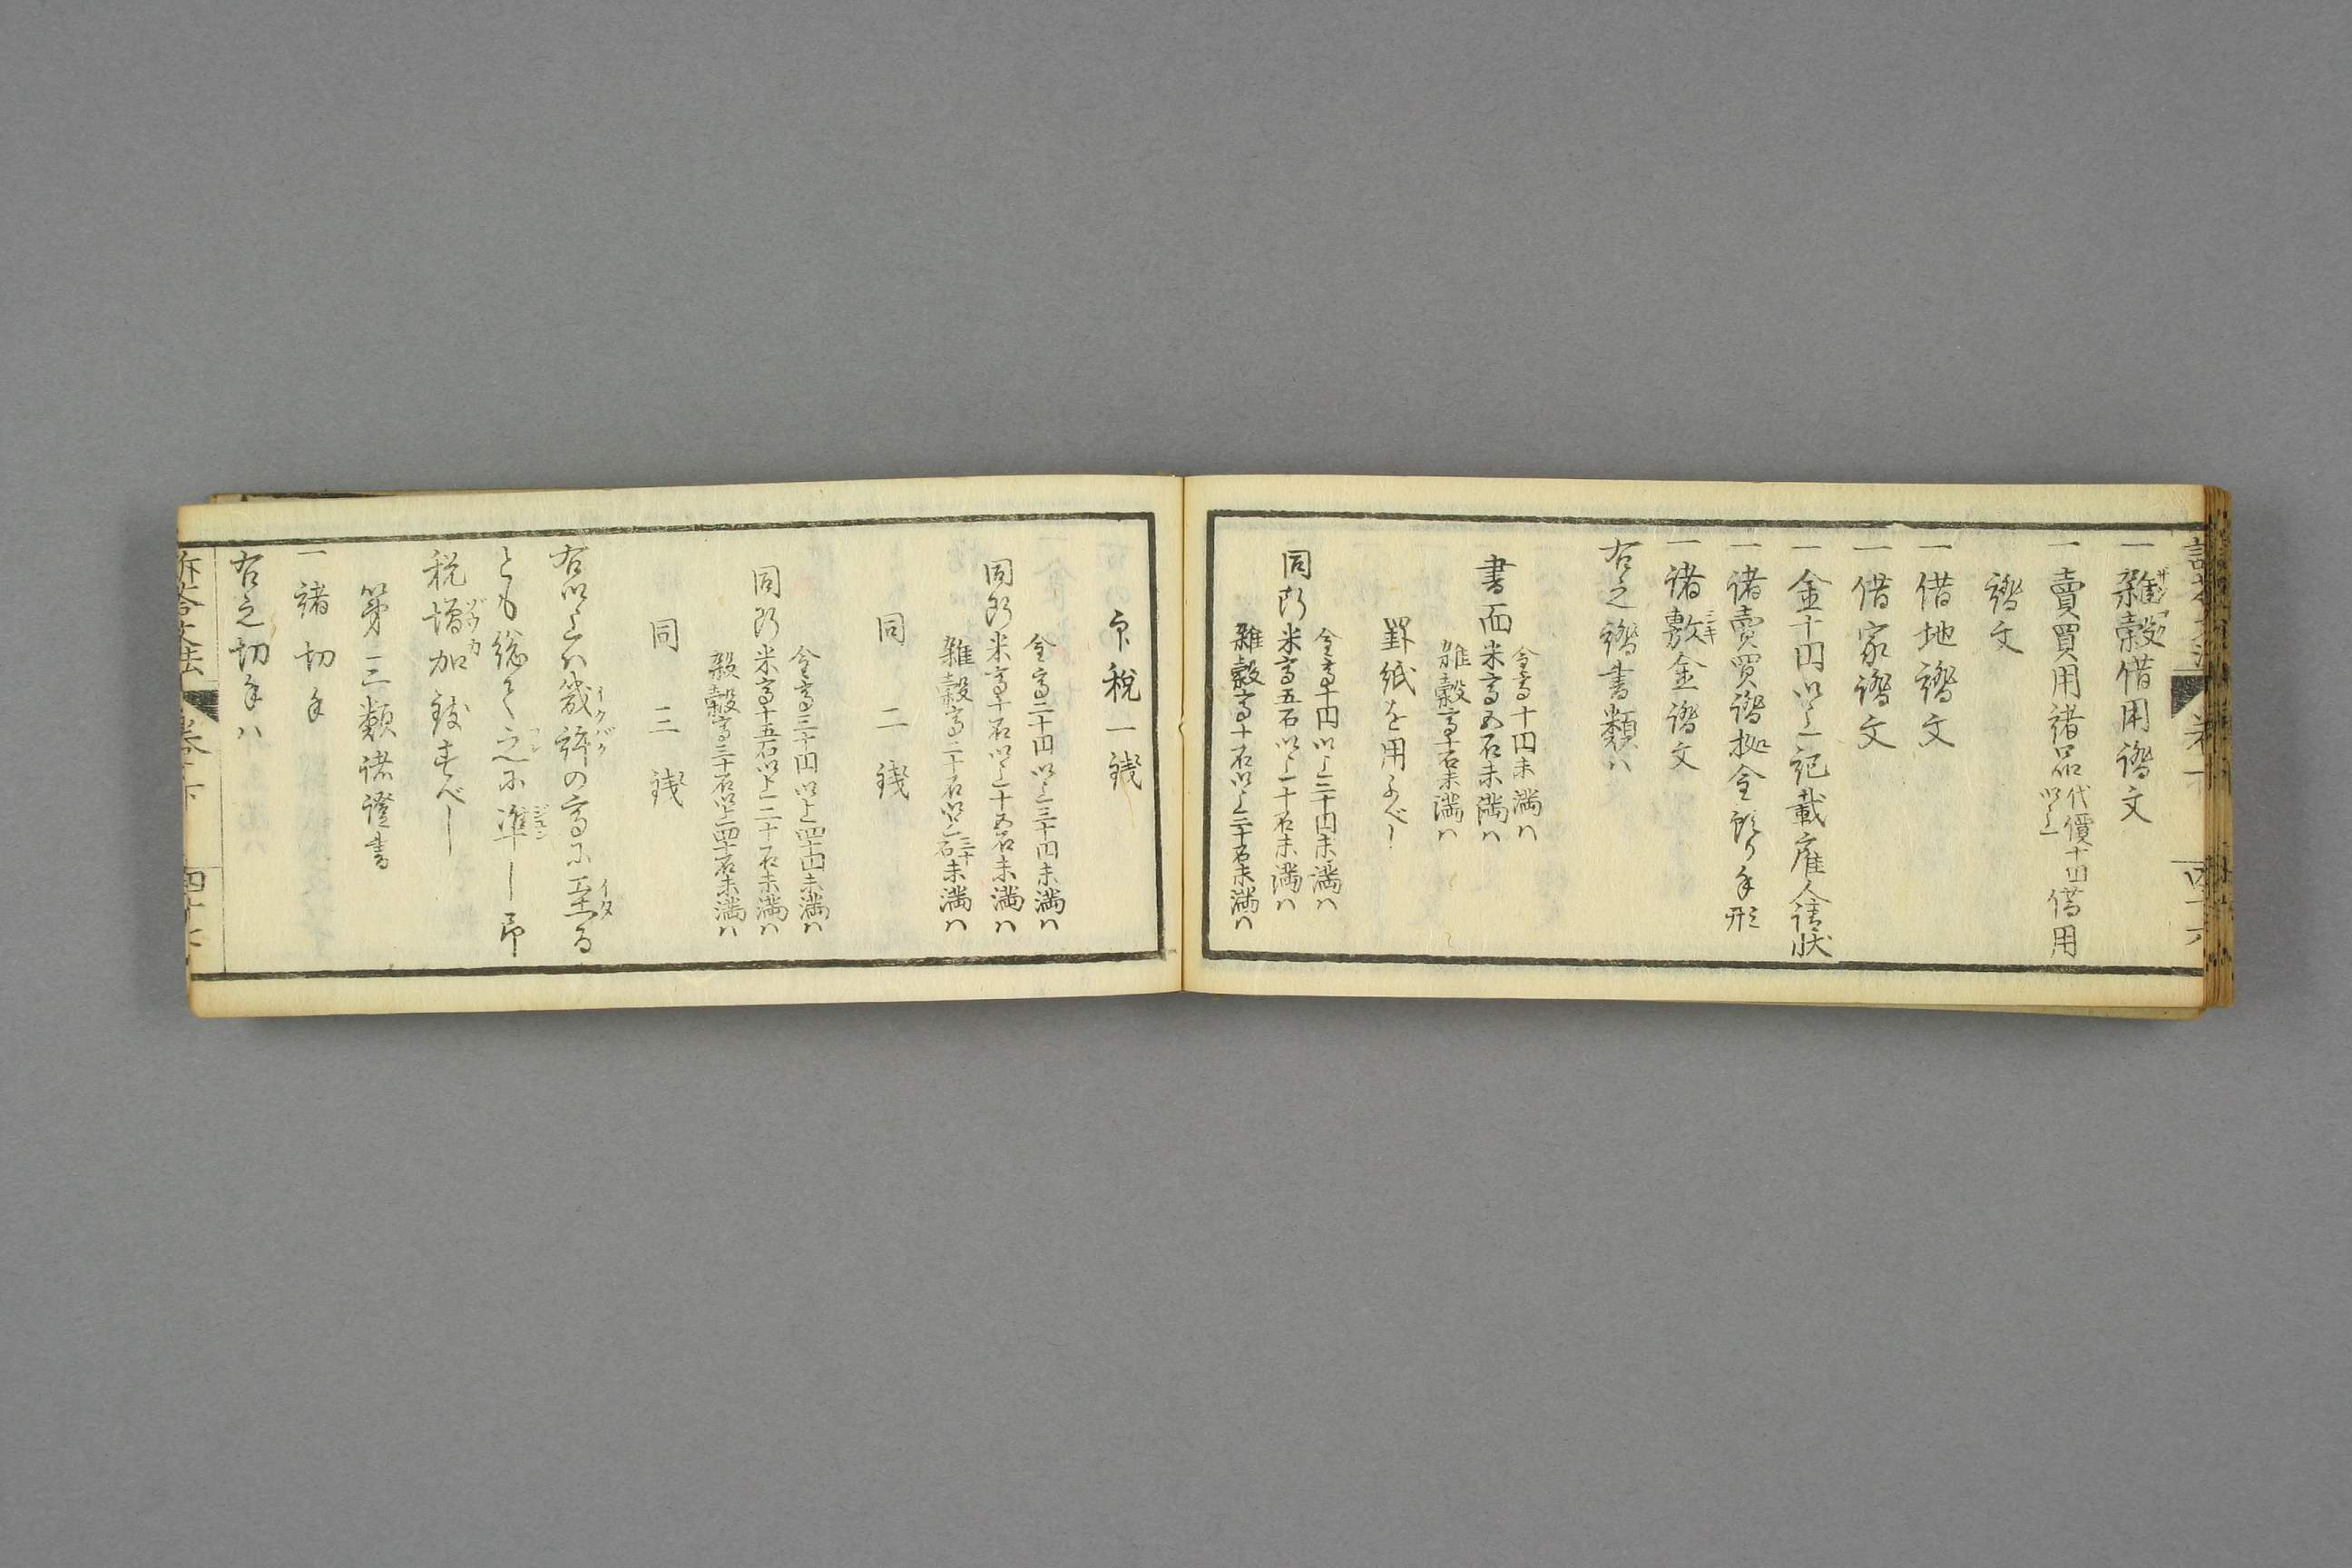 一雜穀借用證文
一賣買用諸品代價十円以上借用
證文
一借地證文
一借家證文
一金十円以上記載雇人請状
一諸賣買證拠金預り手形
一諸敷金證文
右之證書類ハ
金高十円未満ハ
書面米高五石未満ハ
雑穀高十石未満ハ
罫紙を用ふべし
金高十円以上二十円未満ハ
同断米高五石以上十石未満ハ
雑穀高十石以上二十石未満ハ
印税一銭
金高二十円以上三十円未満ハ
同断米高十石以上十五石未満ハ
雑穀高二十石以上三十石未満ハ
同二銭
金高三十円以上四十円未満ハ
同断米高十五石以上二十石未満ハ
穀高三十石以上四十石未満ハ
同三銭
右以上ハ幾許の高に至る
とも総て之に準し印
税増加致すべし
第三類諸證書
一諸切手
右之切手ハ
訴答文法